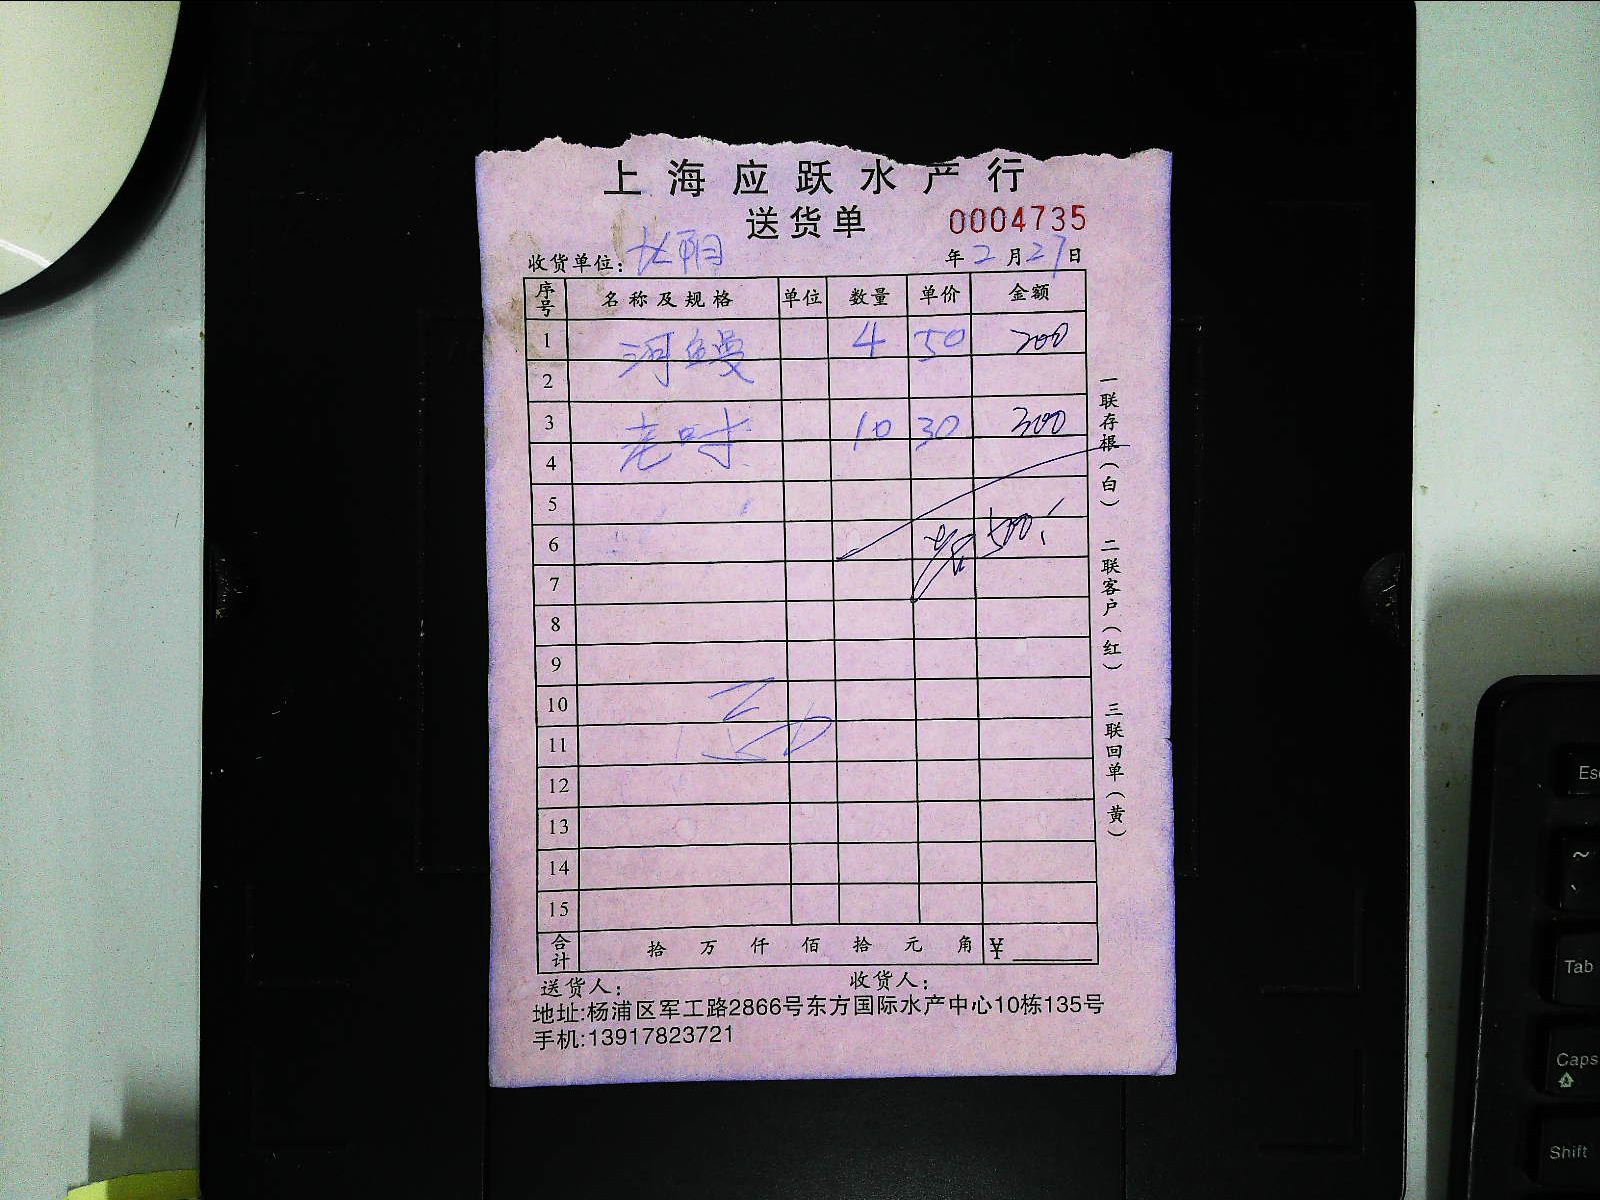 上海应跃水产行
送货单 0004735
收货单位: 沈阳 年2月27日
序号 名称及规格 单位 数量 单价 金额
1 河鳗 4 50 200
2
3 老时 10 30 300
4
5
6 500
7
8
9
10
11
12
13
14
15
合计 拾 万 仟 佰 拾 元 角 ¥
送货人: 收货人:
地址:杨浦区军工路2866号东方国际水产中心10栋135号
手机:13917823721
一联存根(白) 二联客户(红) 三联回单(黄)
Esc
~
Tab
Caps
Shift